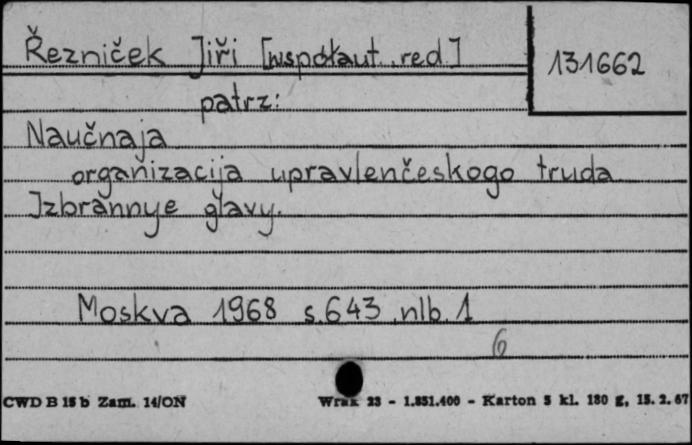 Řezniček Jiři [współaut., red.]
131662
patrz:
Naučnaja
organizacija upravlenčeskogo truda
Izbrannye glavy.
Moskva 1968 s. 643, nlb. 1
6
CWD B 15 b Zam. 14/ON
Wrak 23 - 1.851.400 - Karton 5 kl. 180 g, 15. 2. 67